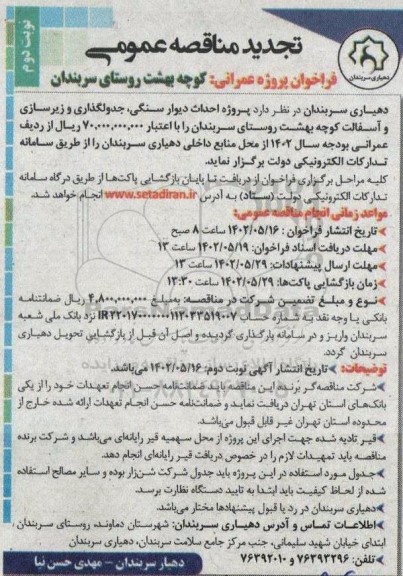 نوبت دوم
تجدید مناقصه عمومی
دهیاری سربندان
فراخوان پروژه عمرانی: کوچه بهشت روستای سربندان
دهیاری سربندان در نظر دارد پروژه احداث دیوار سنگی، جدولگذاری و زیرسازی
و آسفالت کوچه بهشت روستای سربندان را با اعتبار ۷۰,۰۰۰,۰۰۰,۰۰۰ ریال از ردیف
عمرانی بودجه سال ۱۴۰۲ از محل منابع داخلی دهیاری سربندان را از طریق سامانه
تدارکات الکترونیکی دولت برگزار نماید.
کلیه مراحل برگزاری فراخوان از دریافت تا پایان بازگشایی پاکت‌ها از طریق درگاه سامانه
تدارکات الکترونیکی دولت (ستاد) به آدرس www.setadiran.ir انجام خواهد شد.
مواعد زمانی انجام مناقصه عمومی:
تاریخ انتشار فراخوان : ۱۴۰۲/۰۵/۱۶ ساعت ۸ صبح
مهلت دریافت اسناد فراخوان: ۱۴۰۲/۰۵/۱۹ ساعت ۱۳
مهلت ارسال پیشنهادات: ۱۴۰۲/۰۵/۲۹ ساعت ۱۳
زمان بازگشایی پاکت‌ها: ۱۴۰۲/۰۵/۲۹ ساعت ۱۳:۳۰
نوع و مبلغ تضمین شرکت در مناقصه: به‌مبلغ ۴,۸۰۰,۰۰۰,۰۰۰ ریال ضمانتنامه
بانکی یا وجه نقد به شماره حساب نزد بانک ملی شعبه
سربندان واریز و در سامانه بارگذاری گردیده و اصل آن قبل از بازگشایی تحویل دهیاری
سربندان گردد.
توضیحات: تاریخ انتشار آگهی نوبت دوم: ۱۴۰۲/۰۵/۱۶ می‌باشد.
شرکت مناقصه‌گر برنده این مناقصه باید ضمانتنامه حسن انجام تعهدات خود را از یکی
بانک‌های استان تهران دریافت نمایند و ضمانتنامه حسن انجام تعهدات ارائه شده خارج از
محدوده استان تهران غیر قابل قبول می‌باشد.
قیر تادیه شده جهت اجرای این پروژه از محل سهمیه قیر رایانه‌ای می‌باشد و شرکت برنده
مناقصه باید تمهیدات لازم را در خصوص دریافت قیر رایانه‌ای انجام دهد.
جدول مورد استفاده در این پروژه باید جدول شرکت شن‌زار بوده و سایر مصالح استفاده
شده از لحاظ کیفیت باید ابتدا به تایید دستگاه نظارت برسد.
دهیاری سربندان در رد یا قبول پیشنهادها مختار می‌باشد.
اطلاعات تماس و آدرس دهیاری سربندان: شهرستان دماوند روستای سربندان،
ابتدای خیابان شهید سلیمانی، جنب مرکز جامع سلامت سربندان، دهیاری سربندان
تلفن: ۷۶۳۹۳۲۹۶ و ۷۶۳۹۲۰۱۰
دهیار سربندان - مهدی حسن نیا